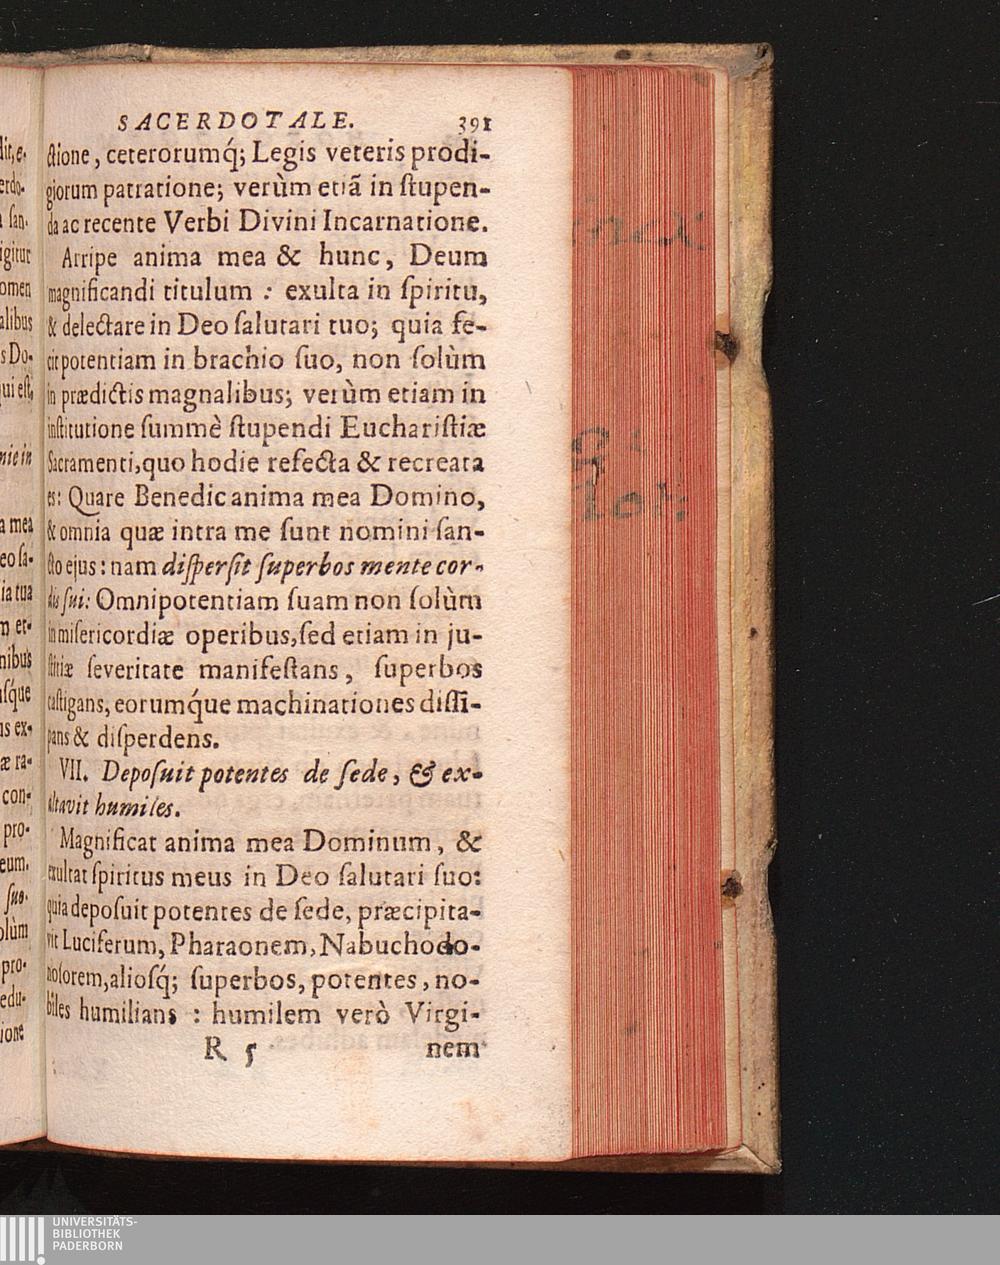 SACERDOTALE. 391
ctione, ceterorumq́; Legis veteris prodi-
giorum patratione; verùm etiā in ſtupen-
da ac recente Verbi Divini Incarnatione.
Arripe anima mea & hunc, Deum
magnificandi titulum : exulta in ſpiritu,
& delectare in Deo ſalutari tuo; quia fe-
cit potentiam in brachio ſuo, non ſolùm
in prædictis magnalibus; verùm etiam in
inſtitutione ſummè ſtupendi Euchariſtiæ
Sacramenti, quo hodie refecta & recreata
es: Quare Benedic anima mea Domino,
& omnia quæ intra me ſunt nomini ſan-
cto ejus: nam diſperſit ſuperbos mente cor-
dis ſui: Omnipotentiam ſuam non ſolùm
in miſericordiæ operibus, ſed etiam in ju-
ſtitiæ ſeveritate manifeſtans, ſuperbos
caſtigans, eorumq́ue machinationes diſſi-
pans & diſperdens.
VII. Depoſuit potentes de ſede, & ex-
altavit humiles.
Magnificat anima mea Dominum, &
exultat ſpiritus meus in Deo ſalutari ſuo:
quia depoſuit potentes de ſede, præcipita-
vit Luciferum, Pharaonem, Nabuchodo-
noſorem, alioſq́; ſuperbos, potentes, no-
biles humilians : humilem verò Virgi-
R 5 nem
UNIVERSITÄTS-
BIBLIOTHEK
PADERBORN